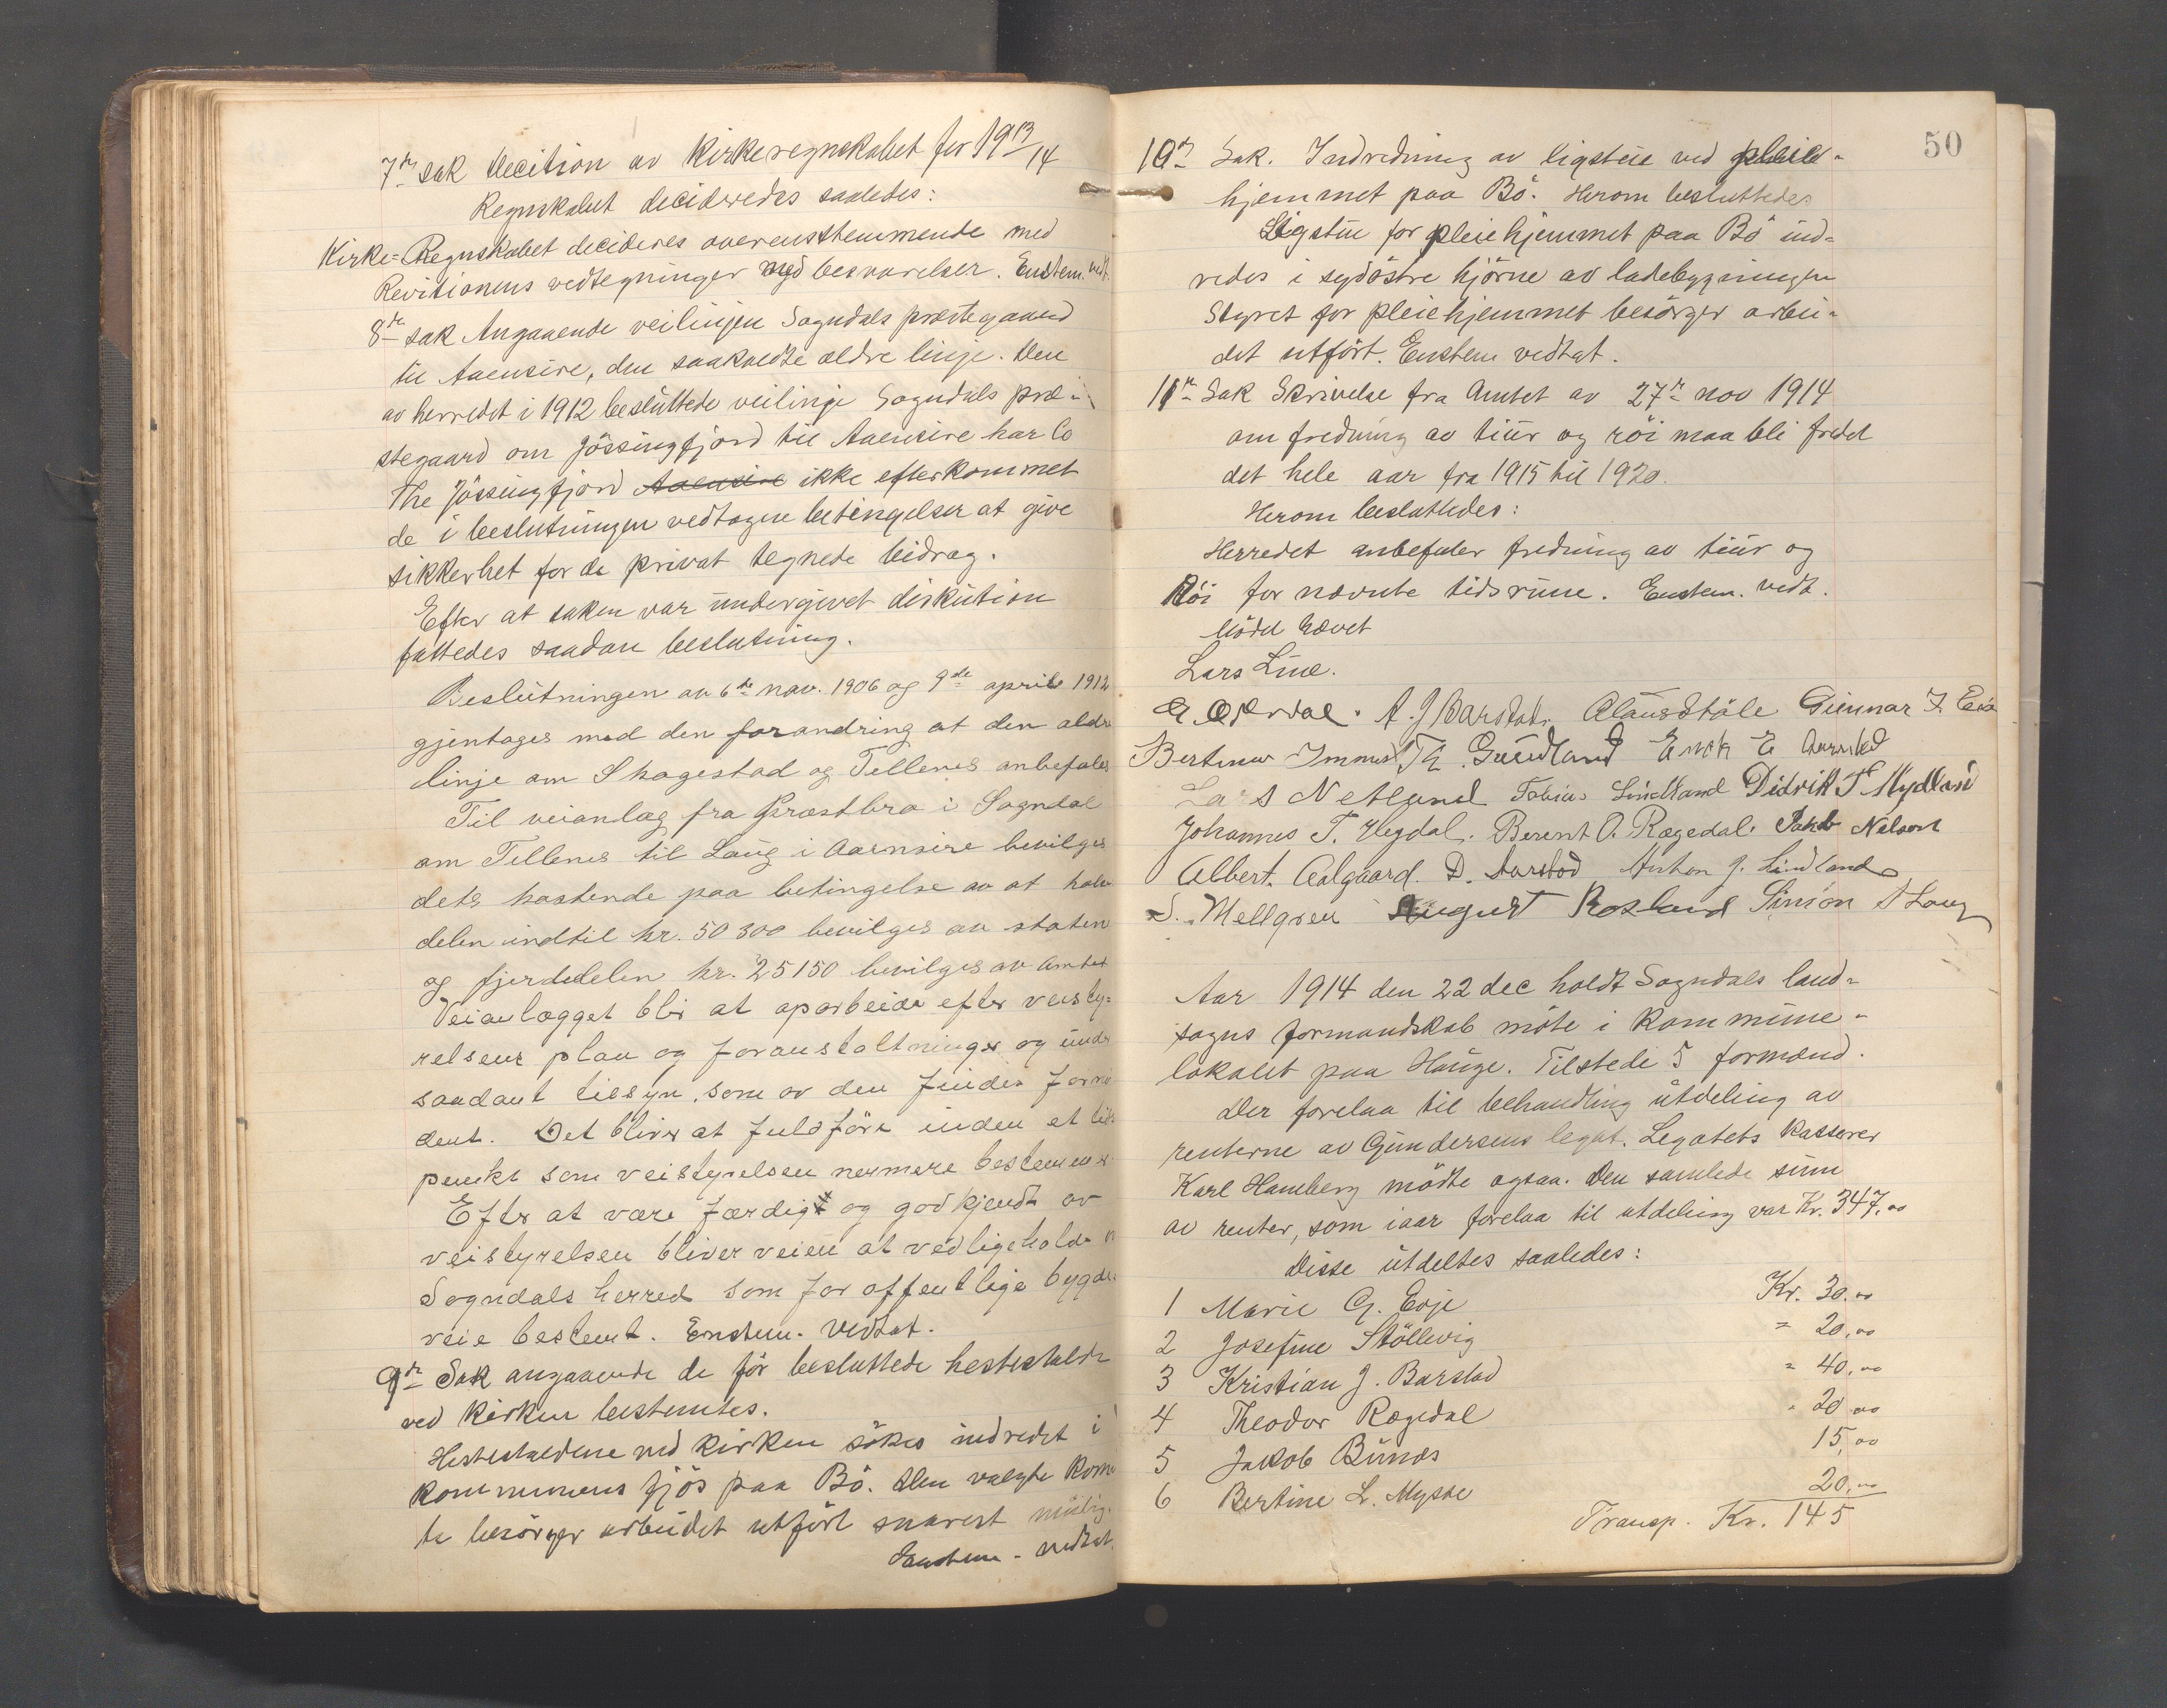 7de sak Decition av Kirkeregnskabet for 1913/14
Regnskabet decideredes saaledes:
Kirke-Regnskabet decideres overensstemmende med
Revitionens vedtegninger med besvarelser. Enstem. vedt.
8de sak Angaaende veilinjen Sogndals prestegaard
til Aaensire, den saakaldte ældre linje. Den
av herredet i 1912 besluttede veilinje Sogndals præ-
stegaard om Jössingfjord til Aaensire har Co
The Jössingfjord Aaensire ikke efterkommet
de i beslutningen vedtagne betingelser at give
sikkerhet for de privat tegnede bidrag.
Efter at saken var undergivet diskution
fattedes saadan beslutning.
Beslutningen av 6te nov. 1906 og 9de april 1912
gjentages med den forandring at den ældr
linje om Skagestad og Tellenes anbefales
Til veianlæg fra Præstbro i Sogndal
om Tellenes til Laug i Aaensire bevilges
dets kostende paa betingelse av at halv
delen indtil kr. 50 300 bevilges av staten
og fjerdedelen kr. 25150 bevilges av Amtet
Veianlægget blir at oparbeide efter veisty-
relsens plan og foranstaltninger og under
saadant tilsyn, som av den findes forno
dent. Det bliver at fuldföre inden et tids
punkt som veistyrelsen nermere bestemmer.
Efter at være færdigt og godkjendt av
veistyrelsen bliver veien at vedligeholde
Sogndals herred som for offentlige bygde
veie bestemt. Enstem. vedtat.
9de Sak angaaende de för besluttede hestestalde
ved kirken bestemtes.
Hestestaldene ved kirken sökes indredet i
kommunens fjös paa Bö. Den valgte Kom
te besörger arbeidet utfört snarest mulig.
Enstem. vedtat.
50
10de Sak. Indredning av ligstue ved pleie-
hjemmet paa Bö. Herom besluttedes
Ligstue for pleiehjemmet paa Bö ind-
redes i sydöstre hjörne av ladebygningen
Styret for pleiehjemmet besörger arbei-
det utfört. Enstem vedtat.
11te Sak Skrivelse fra Amtet av 27de nov 1914
om fredning av tiur og röi maa bli fredet
det hele aar fra 1915 til 1920.
Herom besluttedes:
Herredet anbefaler fredning av tiur og
Röi for nævnte tidsrum. Enstem. vedt.
Mödet hævet
Lars Line.
A. J Barstad. Claus Ståle Gunnar T. Eia
Th. Guddland Enok E Aarrestad
Lars Netland Tobias Lindland Didrik T Mydland
Johannes T. Hegdal. Berent O. Rægedal. Jakob Nelson
Albert. Aalgaard. D. Aarstad Anton J. Lindland
S. Mellgren August Rosland Simon S Laug
Aar 1914 den 22 dec holdt Sogndals land-
sogns formandskab möte i kommune-
lokalet paa Hauge. Tilstede 5 formænd.
Der forelaa til behandling utdeling av
renterne av Gundersens legat. Legatets kasserer
Karl Hamberg mödte ogsaa. Den samlede sum
av renter, som iaar forelaa til utdeling var Kr. 347.00
Disse utdeltes saaledes:
1 Marie G. Eoje Kr. 30.00
2 Josefine Stöllevig " 20.00
3 Kristian J. Barstad " 40.00
4 Theodor Rægedal " 20.00
5 Jakob Bunæs 15,00
6 Bertine L. Mysse 20,00
Transp. Kr. 145